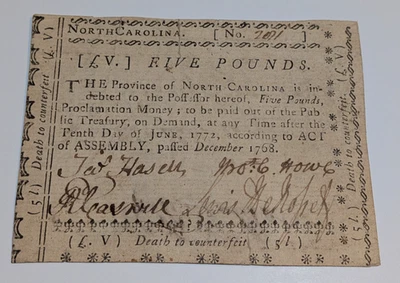 NORTH CAROLINA. [No. 2091]
[£V.] FIVE POUNDS.
THE Province of NORTH CAROLINA is in-
debted to the Poſſeſſor hereof, Five Pounds,
Proclamation Money; to be paid out of the Pub-
lic Treaſury, on Demand, at any Time after the
Tenth Day of JUNE, 1772, according to ACT
of ASSEMBLY, paſſed December 1768.
Jaˢ Hasell
Robᵗ Howe
R Caswell
Lewis De Rosset
(£. V) Death to counterfeit (5 l.)
(5 l.) Death to counterfeit (£. V)